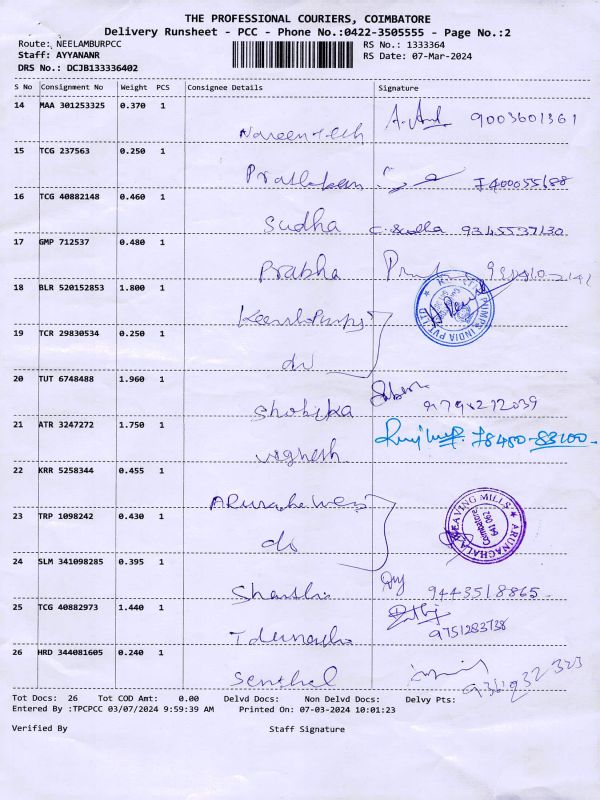 THE PROFESSIONAL COURIERS, COIMBATORE
Delivery Runsheet - PCC - Phone No.:0422-3505555 - Page No.:2
Route: NEELAMBURPCC RS No.: 1333364
Staff: AYYANANR RS Date: 07-Mar-2024
DRS No.: DCJB133336402
S No Consignment No Weight PCS Consignee Details Signature
14 MAA 301253325 0.370 1 9003601361
Naveen Tech
15 TCG 237563 0.250 1
7400055688
16 TCG 40882148 0.460 1
Sudha 9345537130
17 GMP 712537 0.480 1
Prabha
18 BLR 520152853 1.800 1
PUMPS INDIA PVT.LTD
19 TCR 29830534 0.250 1
do
20 TUT 6748488 1.960 1
Shobika
21 ATR 3247272 1.750 1 78450-83100
Vignesh
22 KRR 5258344 0.455 1
23 TRP 1098242 0.430 1
ARUNACHALA WEAVING MILLS
Coimbatore
641 062
do
24 SLM 341098285 0.395 1
9443518865
25 TCG 40882973 1.440 1
9751283738
26 HRD 344081605 0.240 1
Senthil
Tot Docs: 26 Tot COD Amt: 0.00 Delvd Docs: Non Delvd Docs: Delvy Pts:
Entered By :TPCPCC 03/07/2024 9:59:39 AM Printed On: 07-03-2024 10:01:23
Verified By Staff Signature